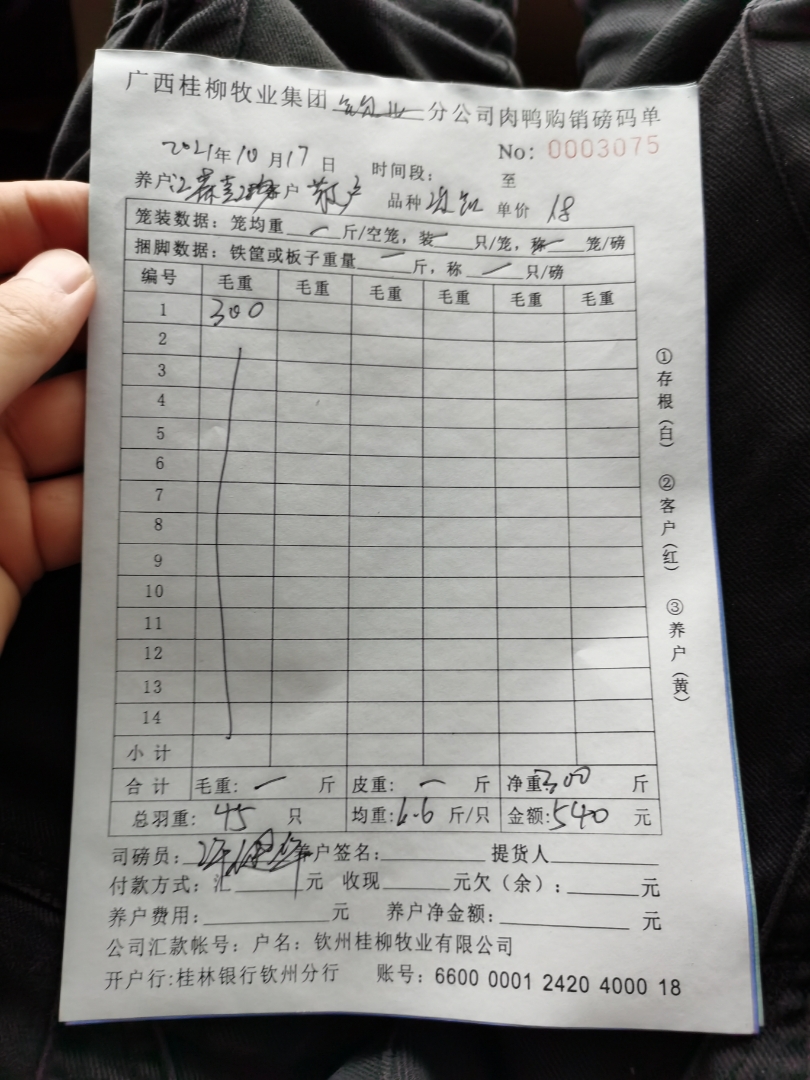 广西桂柳牧业集团 分公司肉鸭购销磅码单
No: 0003075
2021年10月17日 时间段: 至
养户: 客户 散户 品种 单价 18
笼装数据: 笼均重 一 斤/空笼, 装一 只/笼, 称一 笼/磅
捆脚数据: 铁筐或板子重量 一 斤, 称 一 只/磅
编号 毛重 毛重 毛重 毛重 毛重 毛重
1 300
2
3
4
5
6
7
8
9
10
11
12
13
14
小计
合计 毛重: 一 斤 皮重: 一 斤 净重300 斤
总羽重: 45 只 均重: 6.6 斤/只 金额: 540 元
司磅员: 养户签名: 提货人
付款方式: 汇 元 收现 元欠(余): 元
养户费用: 元 养户净金额: 元
公司汇款帐号: 户名: 钦州桂柳牧业有限公司
开户行:桂林银行钦州分行 账号: 6600 0001 2420 4000 18
①存根(白) ②客户(红) ③养户(黄)